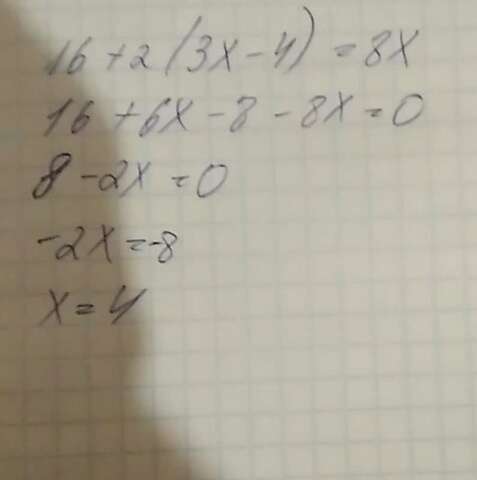 16 + 2 (3x - 4) = 8x
16 + 6x - 8 - 8x = 0
8 - 2x = 0
-2x = -8
x = 4